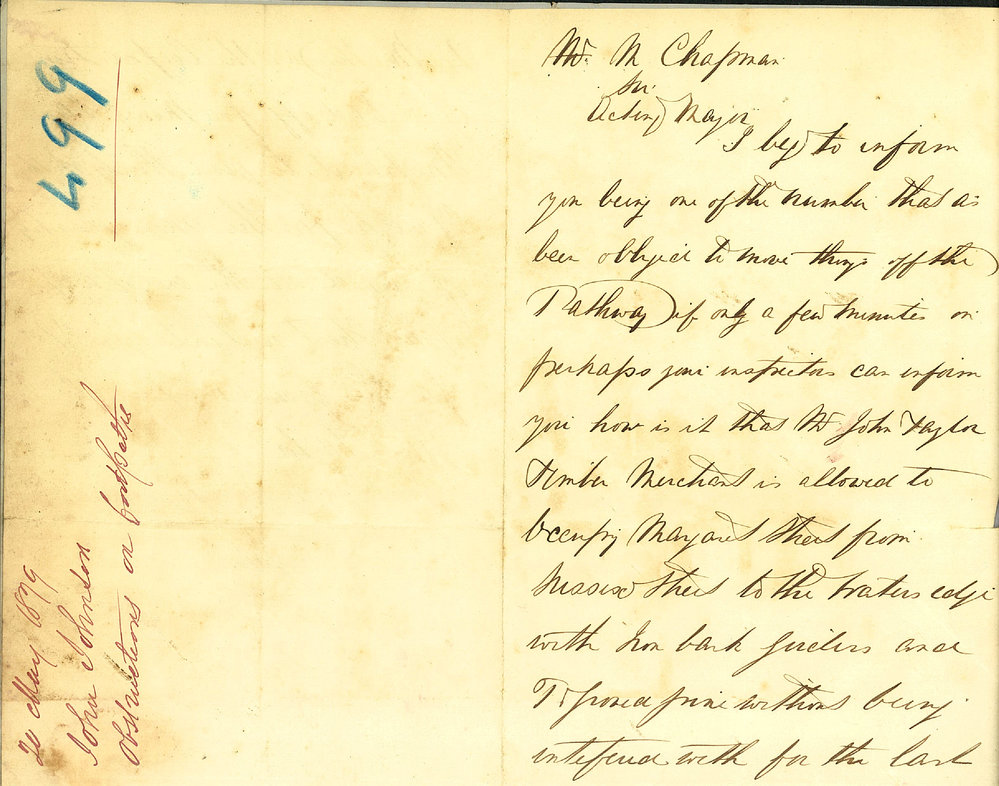 499
20 May 1879
John Johnson
Obstructions on footpaths
Mr. M Chapman
Sir
Acting Mayor
I beg to inform
you being one of the number that as
been obliged to move things off the
Pathway if only a few minutes on
perhaps your inspectors can inform
you how is it that Mr John Taylor
Timber Merchant is allowed to
Occupy Margaret Street from
Sussex Street to the Waters edge
with Iron bark girders and
T & groved pine without being
intefered with for the last